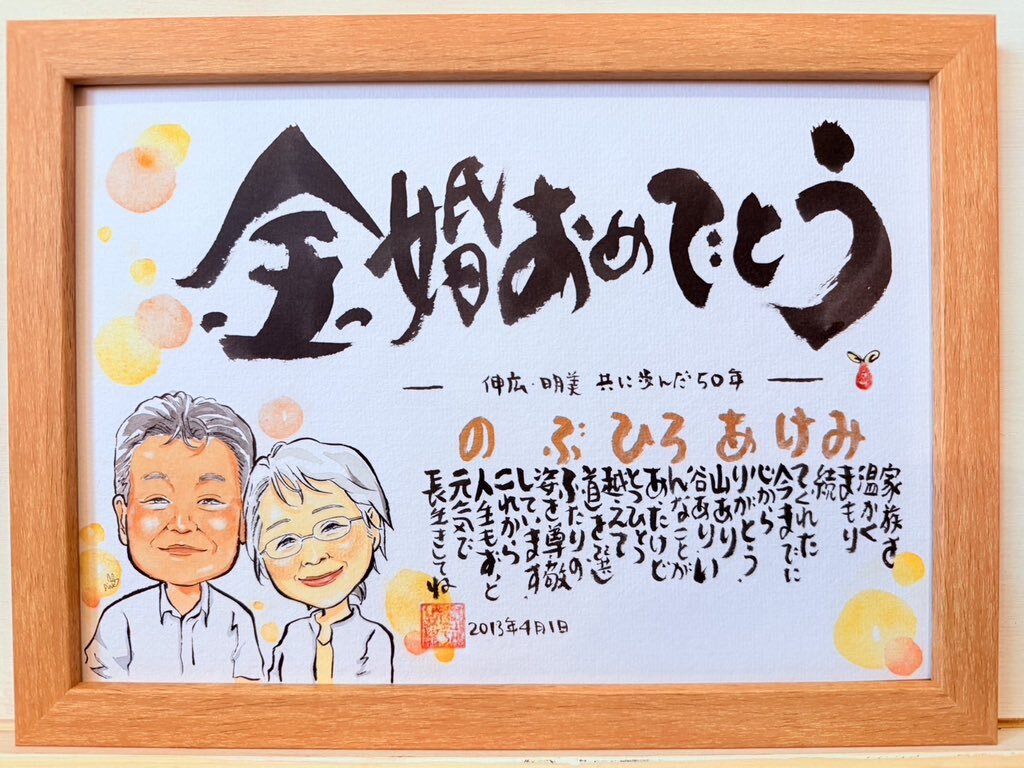 金婚おめでとう
伸広・明美 共に歩んだ50年
のぶひろあけみ
家族を
温かく
まもり
続
てくれた
今までに
心から
りがとう
山あり
谷ありい
んなことが
あったけど
とつひとつ
越えて
道を選
ふたりの
姿を尊敬
しています
これから
人生もずっと
元気で
長生きしてね
2013年4月1日